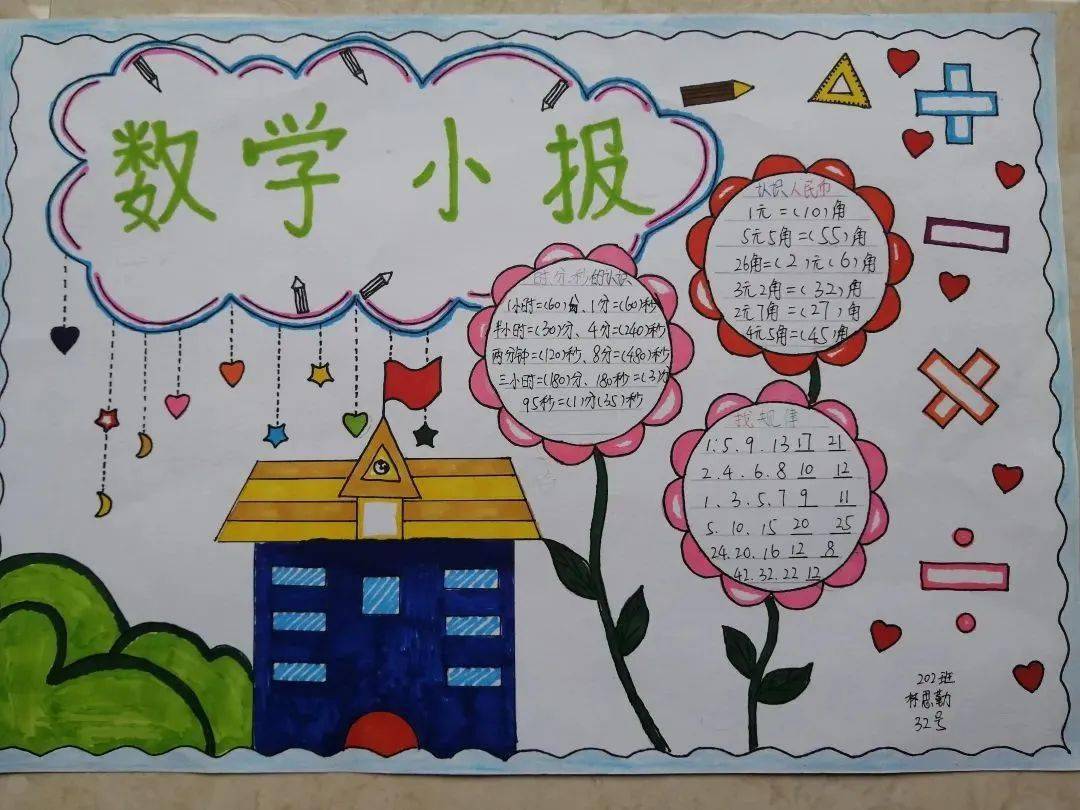 数学小报
时分秒的认识
1小时=(60)分、1分=(60)秒
半小时=(30)分、4分=(240)秒
两分钟=(120)秒、8分=(480)秒
三小时=(180)分、180秒=(3)分
95秒=(1)分(35)秒
认识人民币
1元=(10)角
5元5角=(55)角
26角=(2)元(6)角
3元2角=(32)角
2元7角=(27)角
4元5角=(45)角
找规律
1.5.9.13 17 21
2.4.6.8 10 12
1.3.5.7 9 11
5.10.15 20 25
24.20.16 12 8
42.32.22 12
202班
林思勤
32号